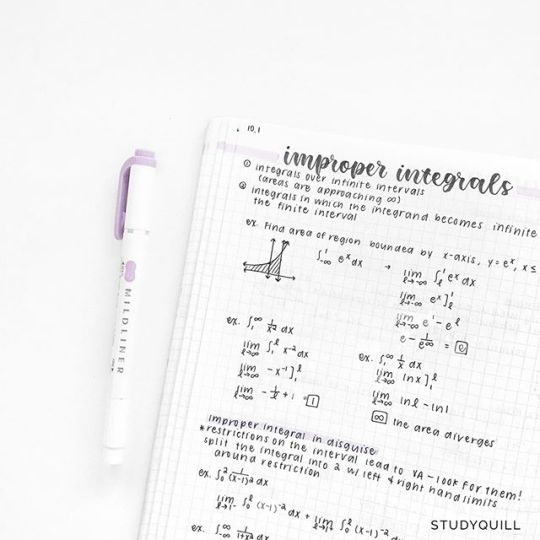 10.1
improper integrals
① integrals over infinite intervals
(areas are approaching ∞)
② integrals in which the integrand becomes infinite
the finite interval
ex. Find area of region bounded by x-axis, y = eˣ, x ≤
∫₋∞¹ eˣ dx → lim ℓ→-∞ ∫ℓ¹ eˣ dx
lim ℓ→-∞ eˣ]ℓ¹
lim ℓ→-∞ e¹ - eℓ
e - 1/e∞ = e
ex. ∫₁∞ 1/x² dx
lim ℓ→∞ ∫₁ℓ x⁻² dx
lim ℓ→∞ -x⁻¹]₁ℓ
lim ℓ→∞ -1/ℓ + 1 = 1
ex. ∫₁∞ 1/x dx
lim ℓ→∞ lnx]₁ℓ
lim ℓ→∞ lnℓ - ln1
∞ the area diverges
improper integral in disguise
*restrictions on the interval lead to VA - look for them!
split the integral into 2 w/ left & right hand limits
around restriction
ex. ∫₀² 1/(x-1)² dx
lim ℓ→1⁻ ∫₀ℓ (x-1)⁻² dx + lim ℓ→1⁺ ∫ (x-1)⁻²
ex. ∫₋∞∞ 1/1+x² dx
MILDLINER
STUDYQUILL